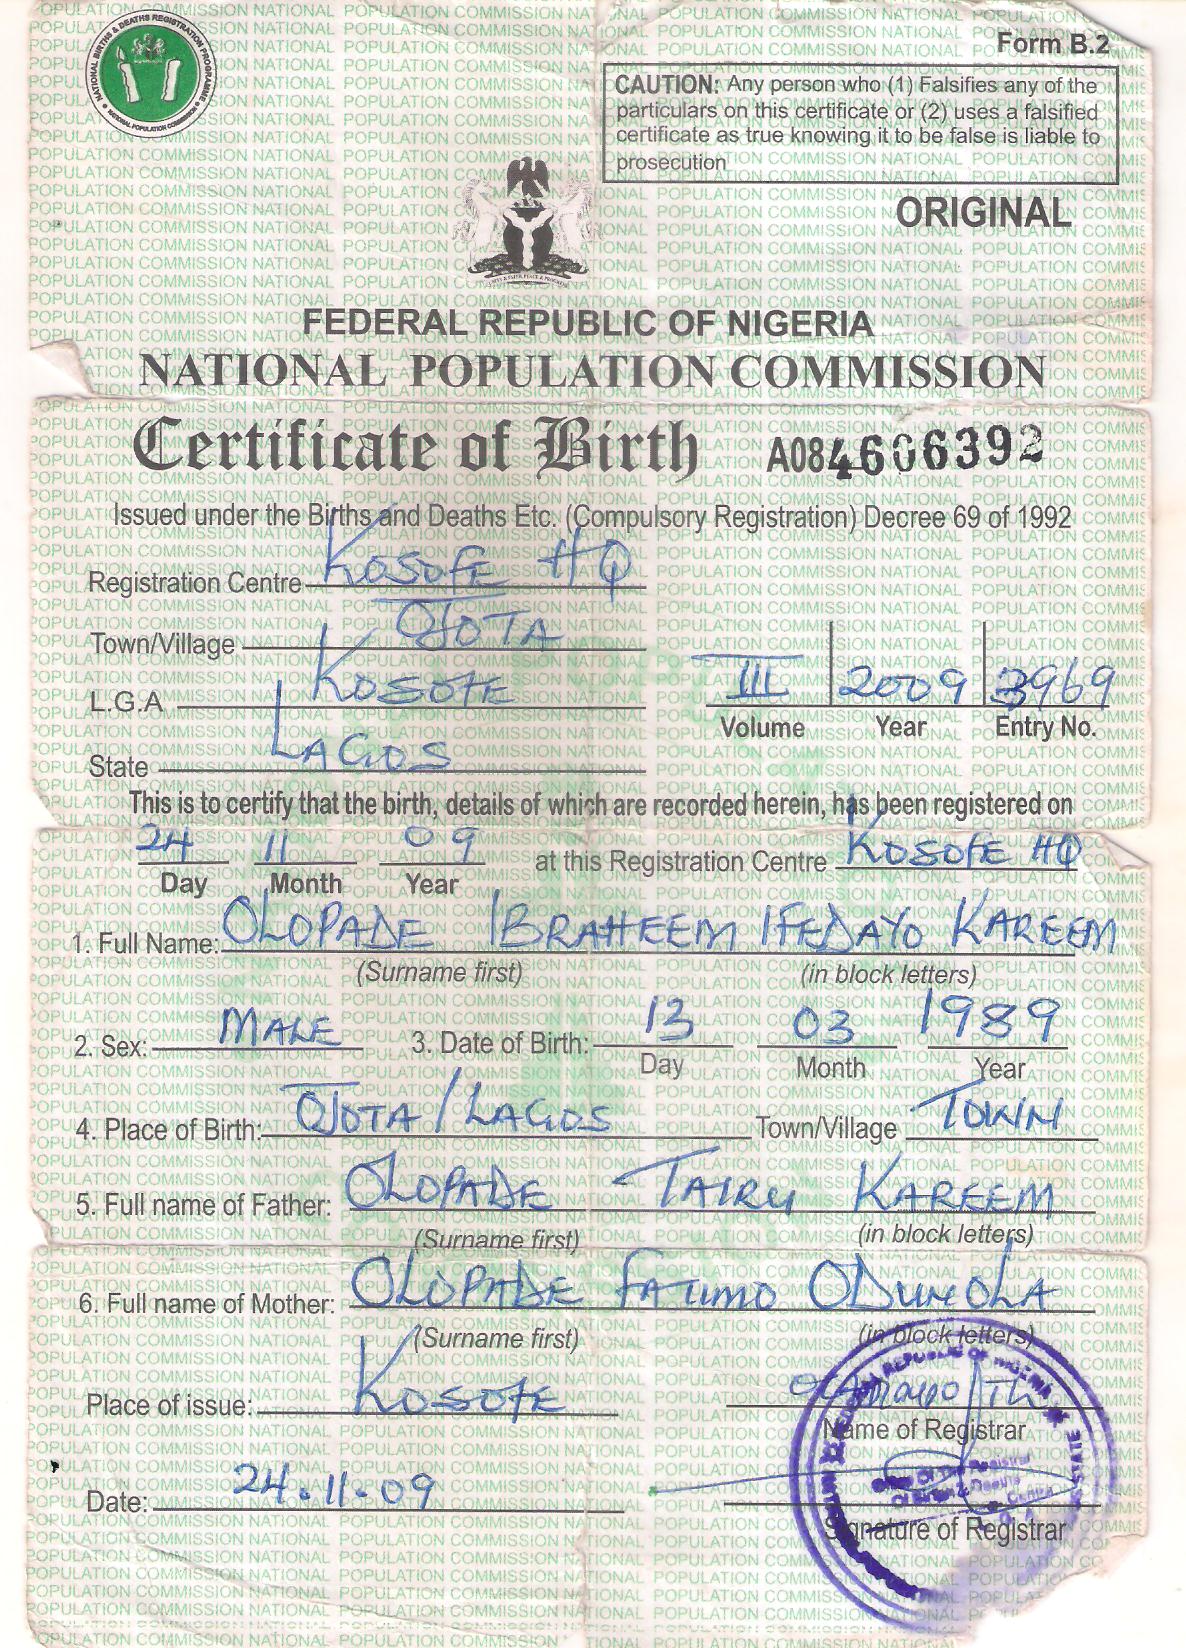 NATIONAL BIRTHS & DEATHS REGISTRATION PROGRAMME
NATIONAL POPULATION COMMISSION
Form B.2
CAUTION: Any person who (1) Falsifies any of the
particulars on this certificate or (2) uses a falsified
certificate as true knowing it to be false is liable to
prosecution
ORIGINAL
FEDERAL REPUBLIC OF NIGERIA
NATIONAL POPULATION COMMISSION
Certificate of Birth A084606392
Issued under the Births and Deaths Etc. (Compulsory Registration) Decree 69 of 1992
Registration Centre KOSOFE HQ
Town/Village OJOTA
L.G.A KOSOFE
III 2009 3969
Volume Year Entry No.
State LAGOS
This is to certify that the birth, details of which are recorded herein, has been registered on
24 11 09 at this Registration Centre KOSOFE HQ
Day Month Year
1. Full Name: OLOPADE IBRAHEEM IFEDAYO KAREEM
(Surname first) (in block letters)
2. Sex: MALE 3. Date of Birth: 13 03 1989
Day Month Year
4. Place of Birth: OJOTA / LAGOS Town/Village TOWN
5. Full name of Father: OLOPADE TAIRU KAREEM
(Surname first) (in block letters)
6. Full name of Mother: OLOPADE FATUMO ODUNOLA
(Surname first) (in block letters)
Place of issue: KOSOFE
Name of Registrar
Date: 24.11.09
Signature of Registrar